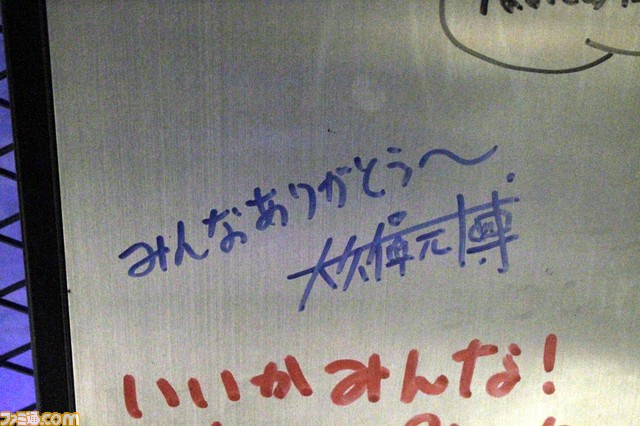 みんなありがとう〜
大久保元博
いいかみんな!
ファミ通.com